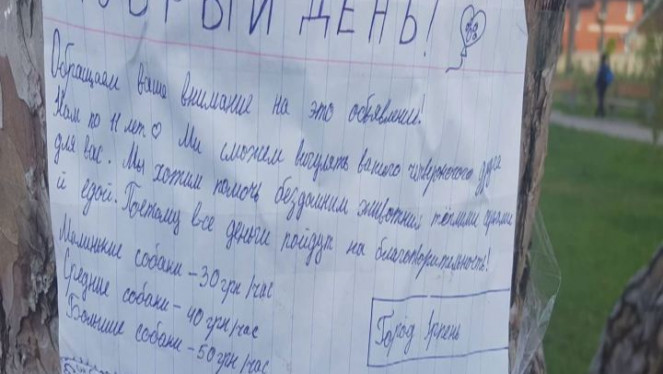 ДОБРЫЙ ДЕНЬ!
Обращаем ваше внимание на это объявление!
Нам по 11 лет. ♡ Мы сможем выгулять вашего четвероногого друга
для вас. Мы хотим помочь бездомним животним тёплими
й едой. Поэтому все деньги пойдут на благотворительность!
Маленькие собаки – 30 грн/час
Средние собаки – 40 грн/час
Большие собаки – 50 грн/час
Город Ірпень